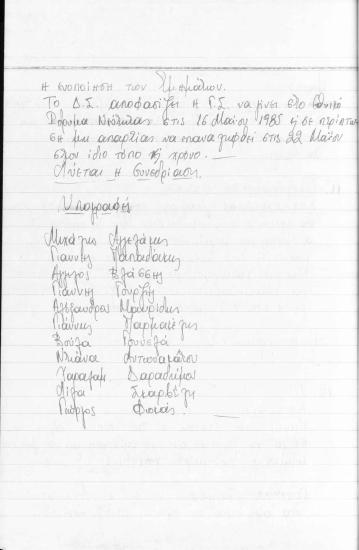 η ενοποίηση των Τμημάτων.
Το Δ.Σ. αποφασίζει η Γ.Σ. να γίνει στο Εθνικό
Ίδρυμα Νεότητας στις 16 Μαΐου 1985 ή σε περίπτω
ση μη απαρτίας να επαναληφθεί στις 22 Μαΐου
στον ίδιο τόπο και χρόνο.
Λύεται η Συνεδρίαση.
Υπογραφές
Μιχάλης Αγγελάκης
Γιάννης Παπαδάκης
Άγγελος Βλάσσης
Γιάννης Γουρζής
Αλέξανδρος Μαυρίδης
Γιάννης
Βούλα Γουνελά
Ντιάνα Αντωνακάτου
Χαραλαμ. Δαραδήμος
Λίζα Σκαρβέλη
Γιώργος Φωκάς.